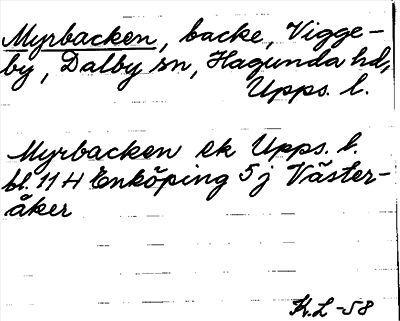 Myrbacken, backe, Vigge-
by, Dalby sn, Hagunda hd,
Upps. l.
Myrbacken ek Upps. l.
bl. 11 H Enköping 5 j Väster-
åker
K.L -58